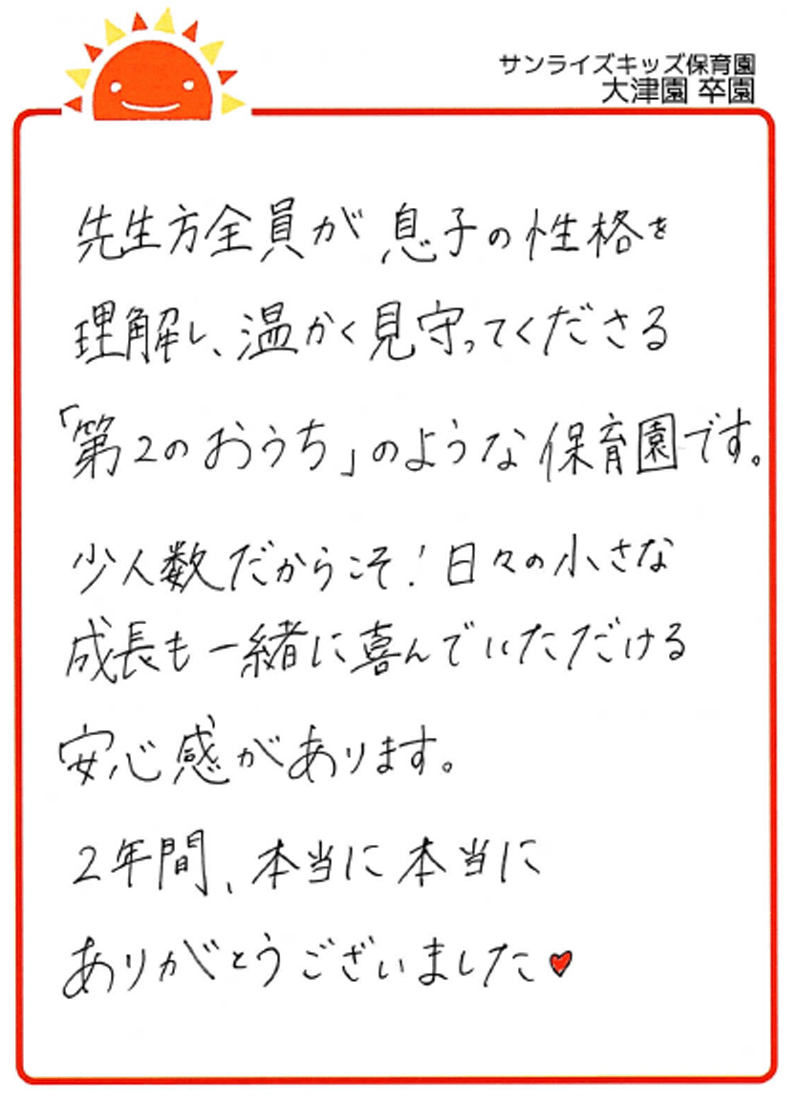 サンライズキッズ保育園
大津園 卒園
先生方全員が息子の性格を
理解し、温かく見守ってくださる
「第2のおうち」のような保育園です。
少人数だからこそ!日々の小さな
成長も一緒に喜んでいただける
安心感があります。
2年間、本当に本当に
ありがとうございました♥